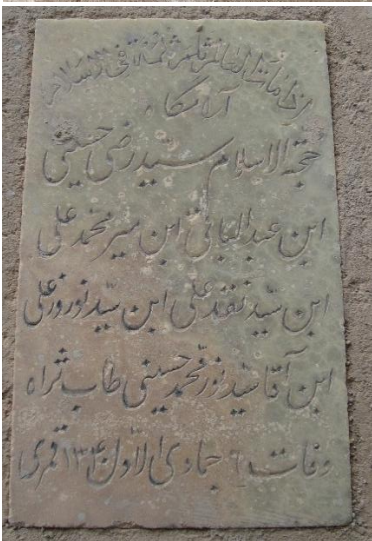 اذا مات العالم ثلم ثلمة فی الاسلام
آرامگاه
حجة الاسلام سید رضی حسینی
ابن عبدالباقی ابن میر محمد علی
ابن سیّد نقد علی ابن سیّد نوروز علی
ابن آقا سیّد نور محمد حسینی طاب ثراه
وفات ۶ جمادی الاوّل ۱۳۴۰ قمری